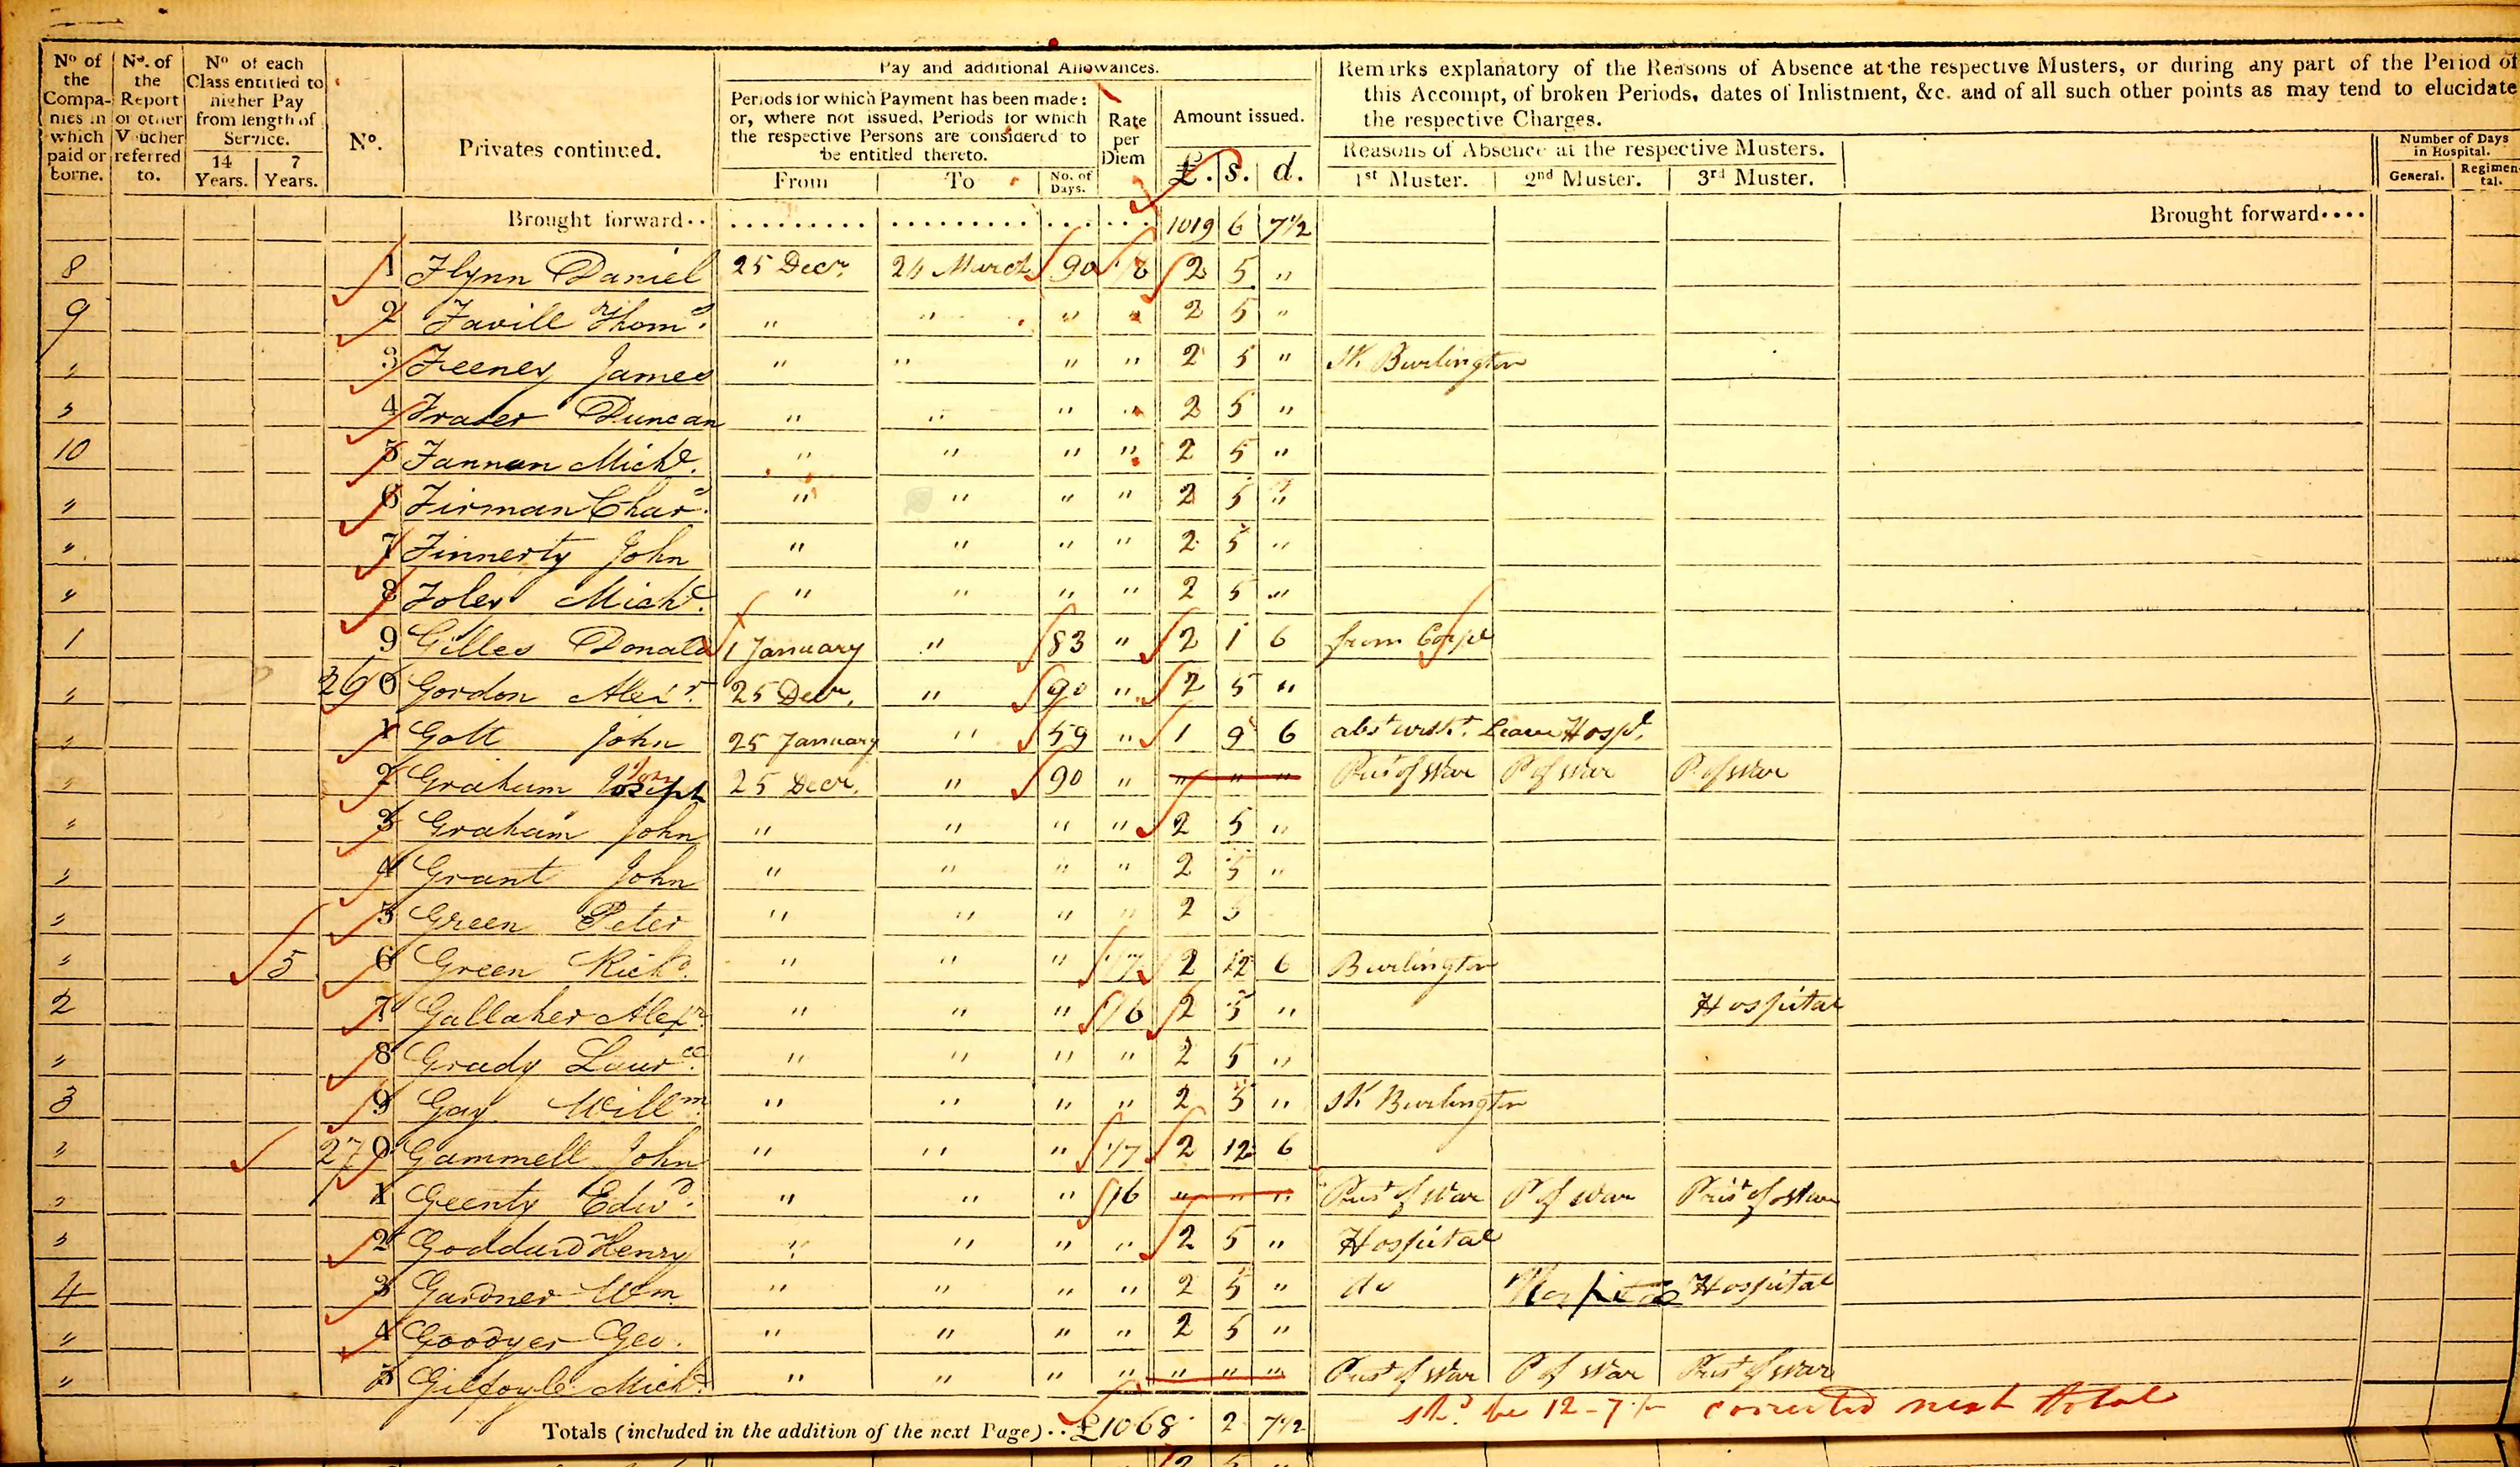 Nº of the Compa- nies in which paid or borne.
Nº. of the Report or other Voucher referred to.
Nº of each Class entitled to higher Pay from length of Service.
14 Years. 7 Years.
Nº.
Privates continued.
Pay and additional Allowances.
Periods for which Payment has been made: or, where not issued, Periods for which the respective Persons are considered to be entitled thereto.
From To No. of Days.
Rate per Diem
Amount issued.
£. s. d.
Remarks explanatory of the Reasons of Absence at the respective Musters, or during any part of the Period of
this Accompt, of broken Periods, dates of Inlistment, &c. and of all such other points as may tend to elucidate
the respective Charges.
Reasons of Absence at the respective Musters.
1st Muster. 2nd Muster. 3rd Muster.
Number of Days in Hospital.
General. Regimen- tal.
Brought forward.. 1019 6 7½ Brought forward....
8 1 Flynn Daniel 25 Decr. 24 March 90 /6 2 5 "
9 2 Favill Thoms. " " " " 2 5 "
" 3 Feeney James " " " " 2 5 " Sk Burlington
" 4 Fraser Duncan " " " " 2 5 "
10 5 Fannan Michl. " " " " 2 5 "
" 6 Firman Chars. " " " " 2 5 "
" 7 Finnerty John " " " " 2 5 "
" 8 Foley Michl. " " " " 2 5 "
1 9 Gilles Donald 1 January " 83 " 2 1 6 from Corpl
" 260 Gordon Alexr. 25 Decr. " 90 " 2 5 "
" 1 Gott John 25 January " 59 " 1 9 6 abst witht. Leave Hospl.
" 2 Graham Joseph 25 Decr. " 90 " " " " Prisr of War P of War P of War
" 3 Graham John " " " " 2 5 "
" 4 Grant John " " " " 2 5 "
" 5 Green Peter " " " " 2 5
" 5 6 Green Richd. " " " /7 2 12 6 Burlington
2 7 Gallaher Alexr. " " " /6 2 5 " Hospital
" 8 Grady Laurce. " " " " 2 5 "
3 9 Gay Willm. " " " " 2 5 " Sk Burlington
" 270 Gammell John " " " /7 2 12 6
" 1 Geenty Edwd. " " " /6 " " " Prisr of War P of War Prisr of War
" 2 Goddard Henry " " " " 2 5 " Hospital
4 3 Gardner Wm. " " " " 2 5 " do Hospital Hospital
" 4 Goodyer Geo. " " " " 2 5 "
" 5 Gilfoyle Michl. " " " " " " " Prisr of War P of War Prisr of War
Totals (included in the addition of the next Page).. £1068 2 7½
shd. be 12-7½ corrected next total